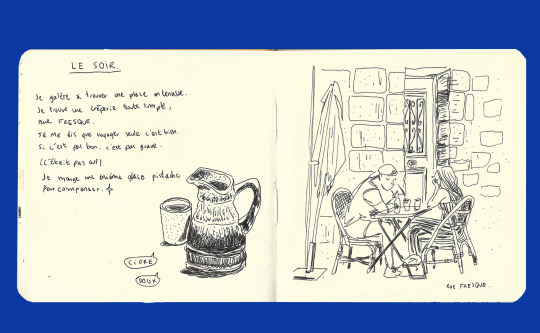 LE SOIR.
Je galère à trouver une place en terrasse.
Je trouve une crêperie toute simple,
rue FRESQUE.
JE ME dis que voyager seule c'est bien.
Si c'est pas bon. c'est pas grave.
(c'était pas ouf)
Je mange une énième glace pistache
pour compenser.
CIDRE
DOUX
RUE FRESQUE.